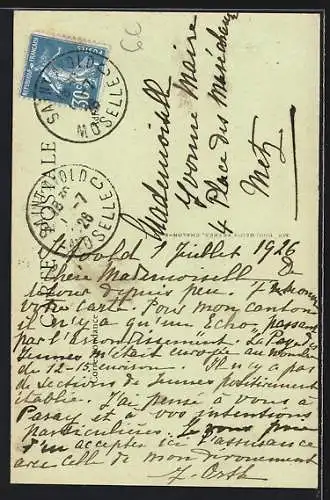 RÉPUBLIQUE FRANÇAISE
POSTES
30c
SAINT-AVOLD
MOSELLE
66
SAINT-AVOLD
1-7
26
MOSELLE
CARTE POSTALE
Correspondance
Mademoiselle
Yvonne Maire
Place des Maréchaux
Metz
St Avold 1 Juillet 1926
Chère Mademoiselle
De retour depuis peu
votre carte. Pour mon canton
il n'y a qu'un "Echo" passant
par l'arrondissement. La Page des
Jeunes m'était envoyée au nombre
de 12-15 environ. Il n'y a pas
de sections de Jeunes positivement
établie. J'ai pensé à vous à
Paray et à vos intentions
particulières. Je vous prie
d'en accepter ici l'assurance
avec celle de mon dévouement
J. Orth